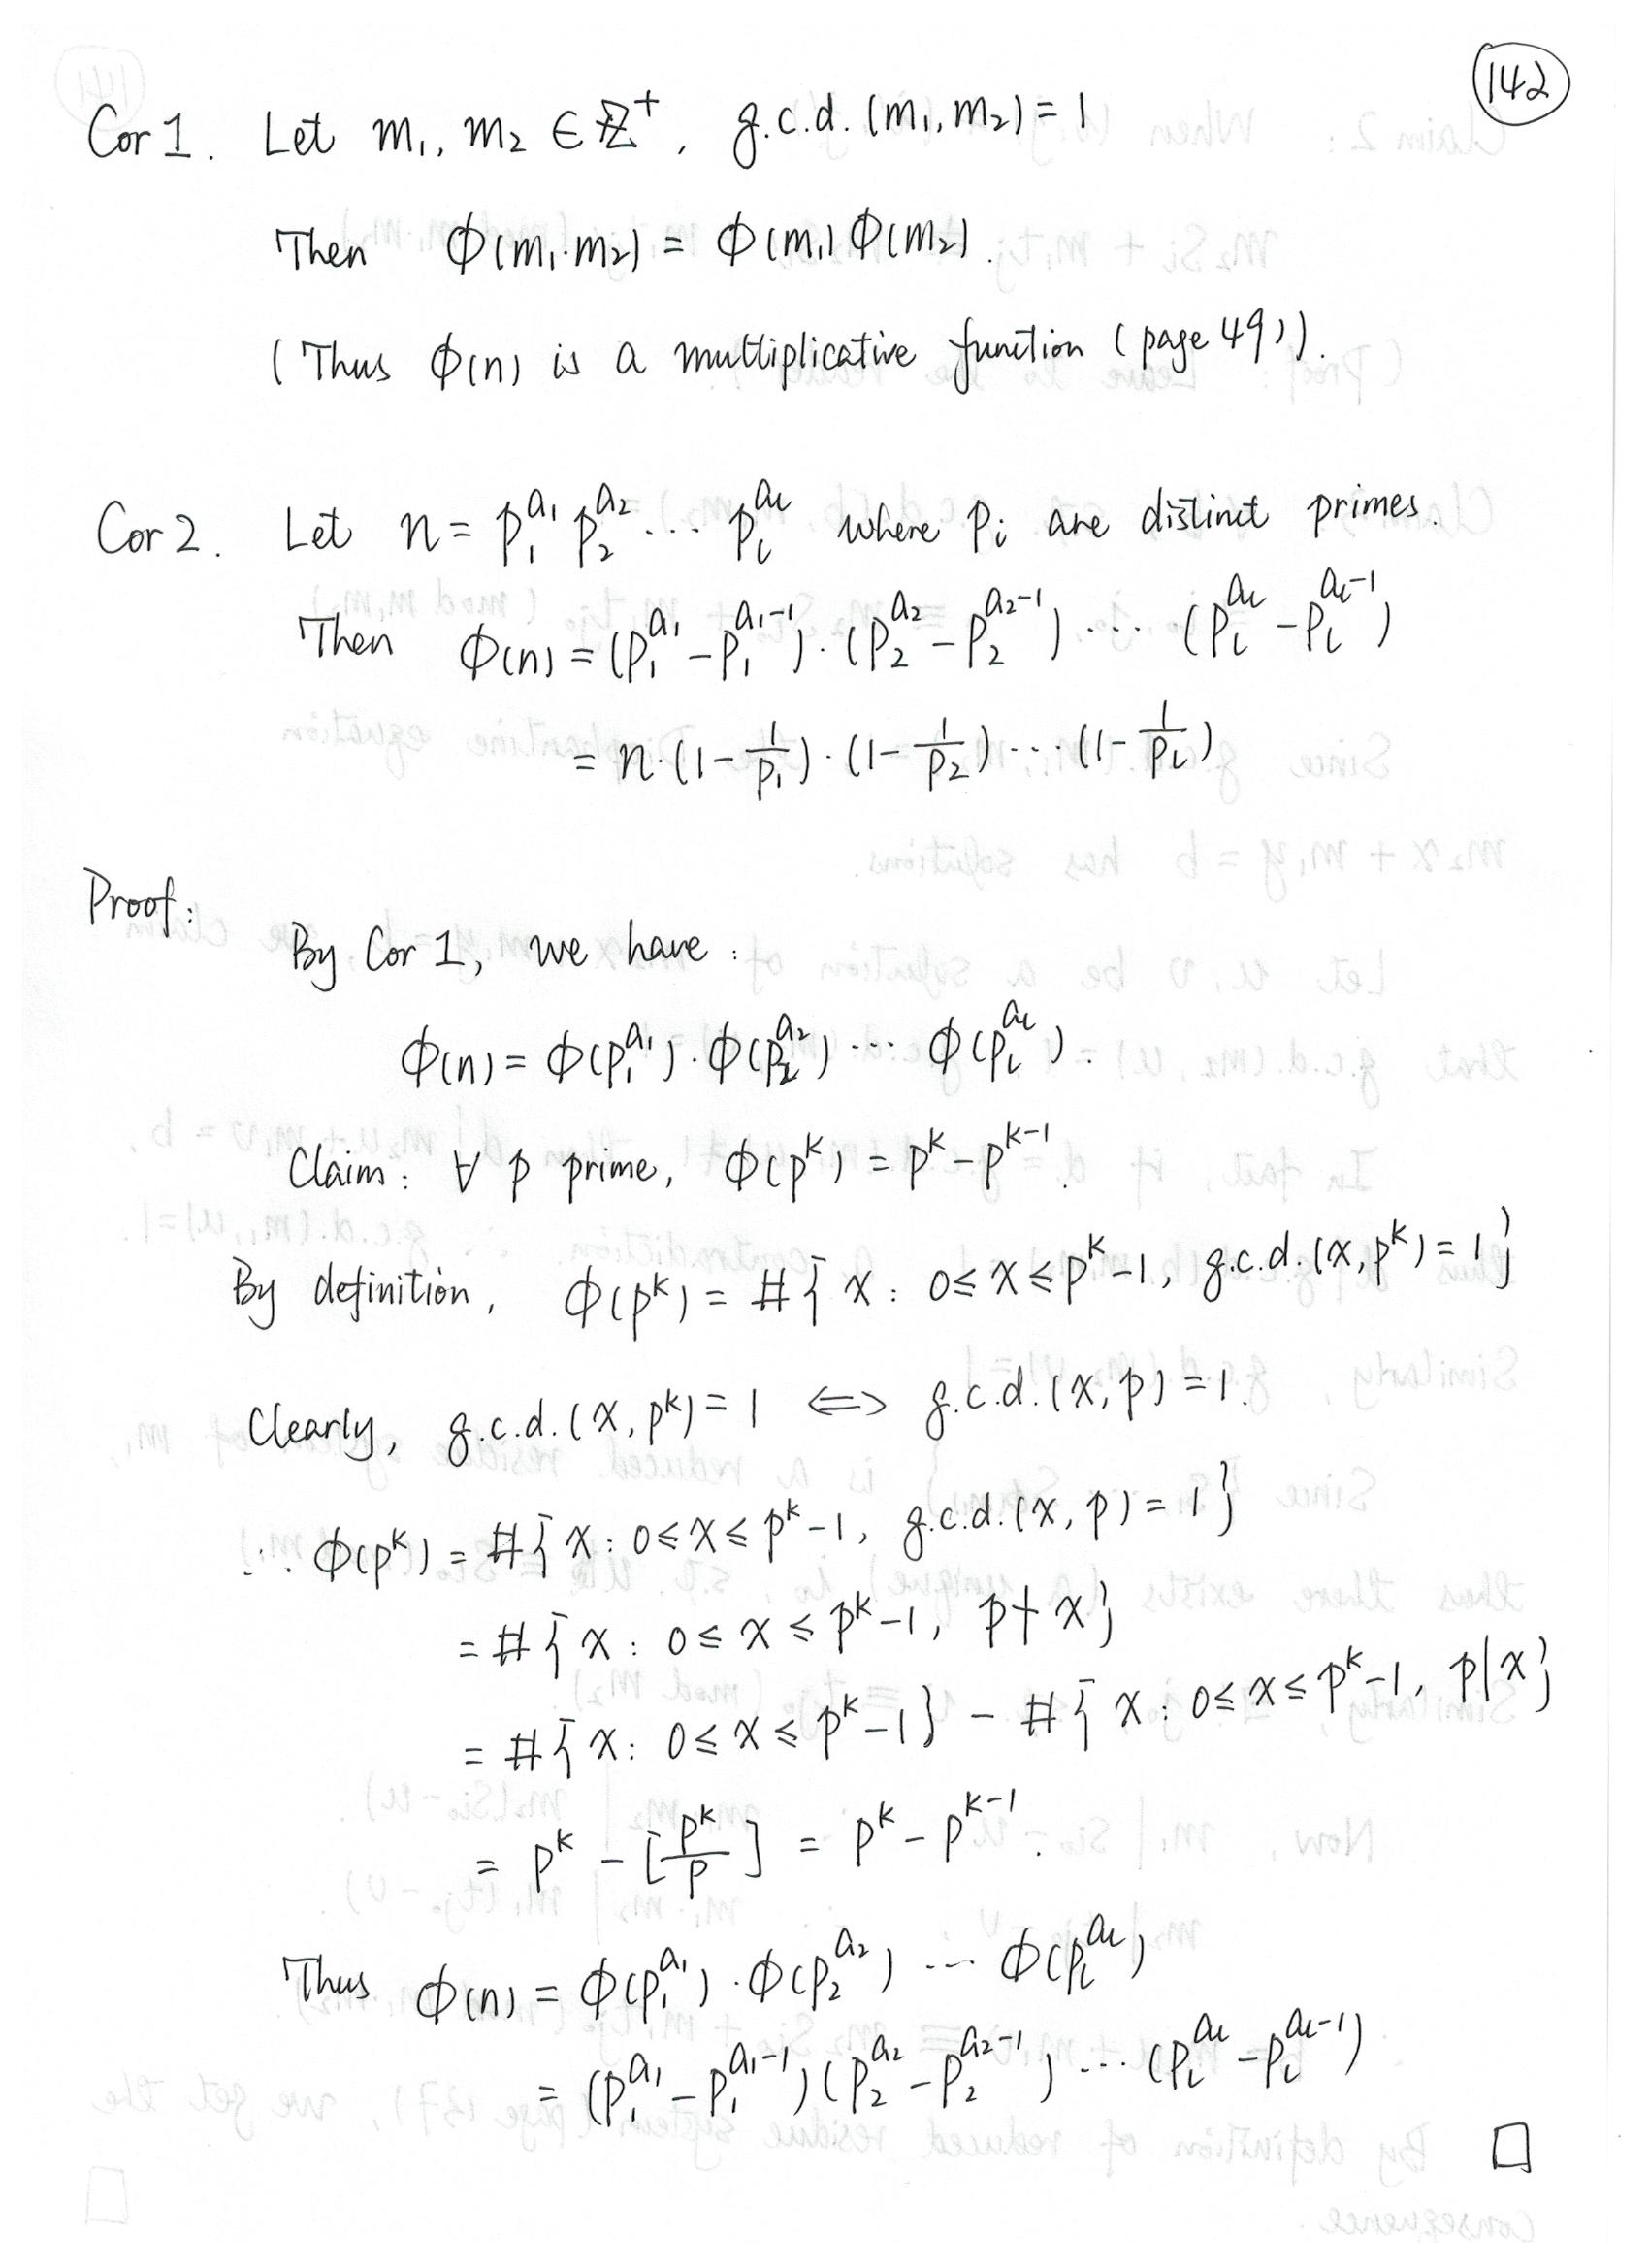 142
Cor 1. Let m₁, m₂ ∈ ℤ⁺, g.c.d. (m₁, m₂) = 1
Then ϕ(m₁·m₂) = ϕ(m₁) ϕ(m₂).
(Thus ϕ(n) is a multiplicative function (page 49)).
Cor 2. Let n = p₁^{a₁} p₂^{a₂} ... p_l^{a_l} where p_i are distinct primes.
Then ϕ(n) = (p₁^{a₁} - p₁^{a₁-1}) · (p₂^{a₂} - p₂^{a₂-1}) ... (p_l^{a_l} - p_l^{a_l-1})
= n·(1 - 1/p₁) · (1 - 1/p₂) ... (1 - 1/p_l)
Proof:
By Cor 1, we have:
ϕ(n) = ϕ(p₁^{a₁}) · ϕ(p₂^{a₂}) ... ϕ(p_l^{a_l}).
Claim: ∀ p prime, ϕ(p^k) = p^k - p^{k-1}.
By definition, ϕ(p^k) = #{ x : 0 ≤ x ≤ p^k - 1, g.c.d. (x, p^k) = 1 }
Clearly, g.c.d. (x, p^k) = 1 ⟺ g.c.d. (x, p) = 1.
∴ ϕ(p^k) = #{ x : 0 ≤ x ≤ p^k - 1, g.c.d. (x, p) = 1 }
= #{ x : 0 ≤ x ≤ p^k - 1, p ∤ x }
= #{ x : 0 ≤ x ≤ p^k - 1 } - #{ x : 0 ≤ x ≤ p^k - 1, p | x }
= p^k - [p^k/p] = p^k - p^{k-1}.
Thus ϕ(n) = ϕ(p₁^{a₁}) · ϕ(p₂^{a₂}) ... ϕ(p_l^{a_l})
= (p₁^{a₁} - p₁^{a₁-1}) (p₂^{a₂} - p₂^{a₂-1}) ... (p_l^{a_l} - p_l^{a_l-1})
□